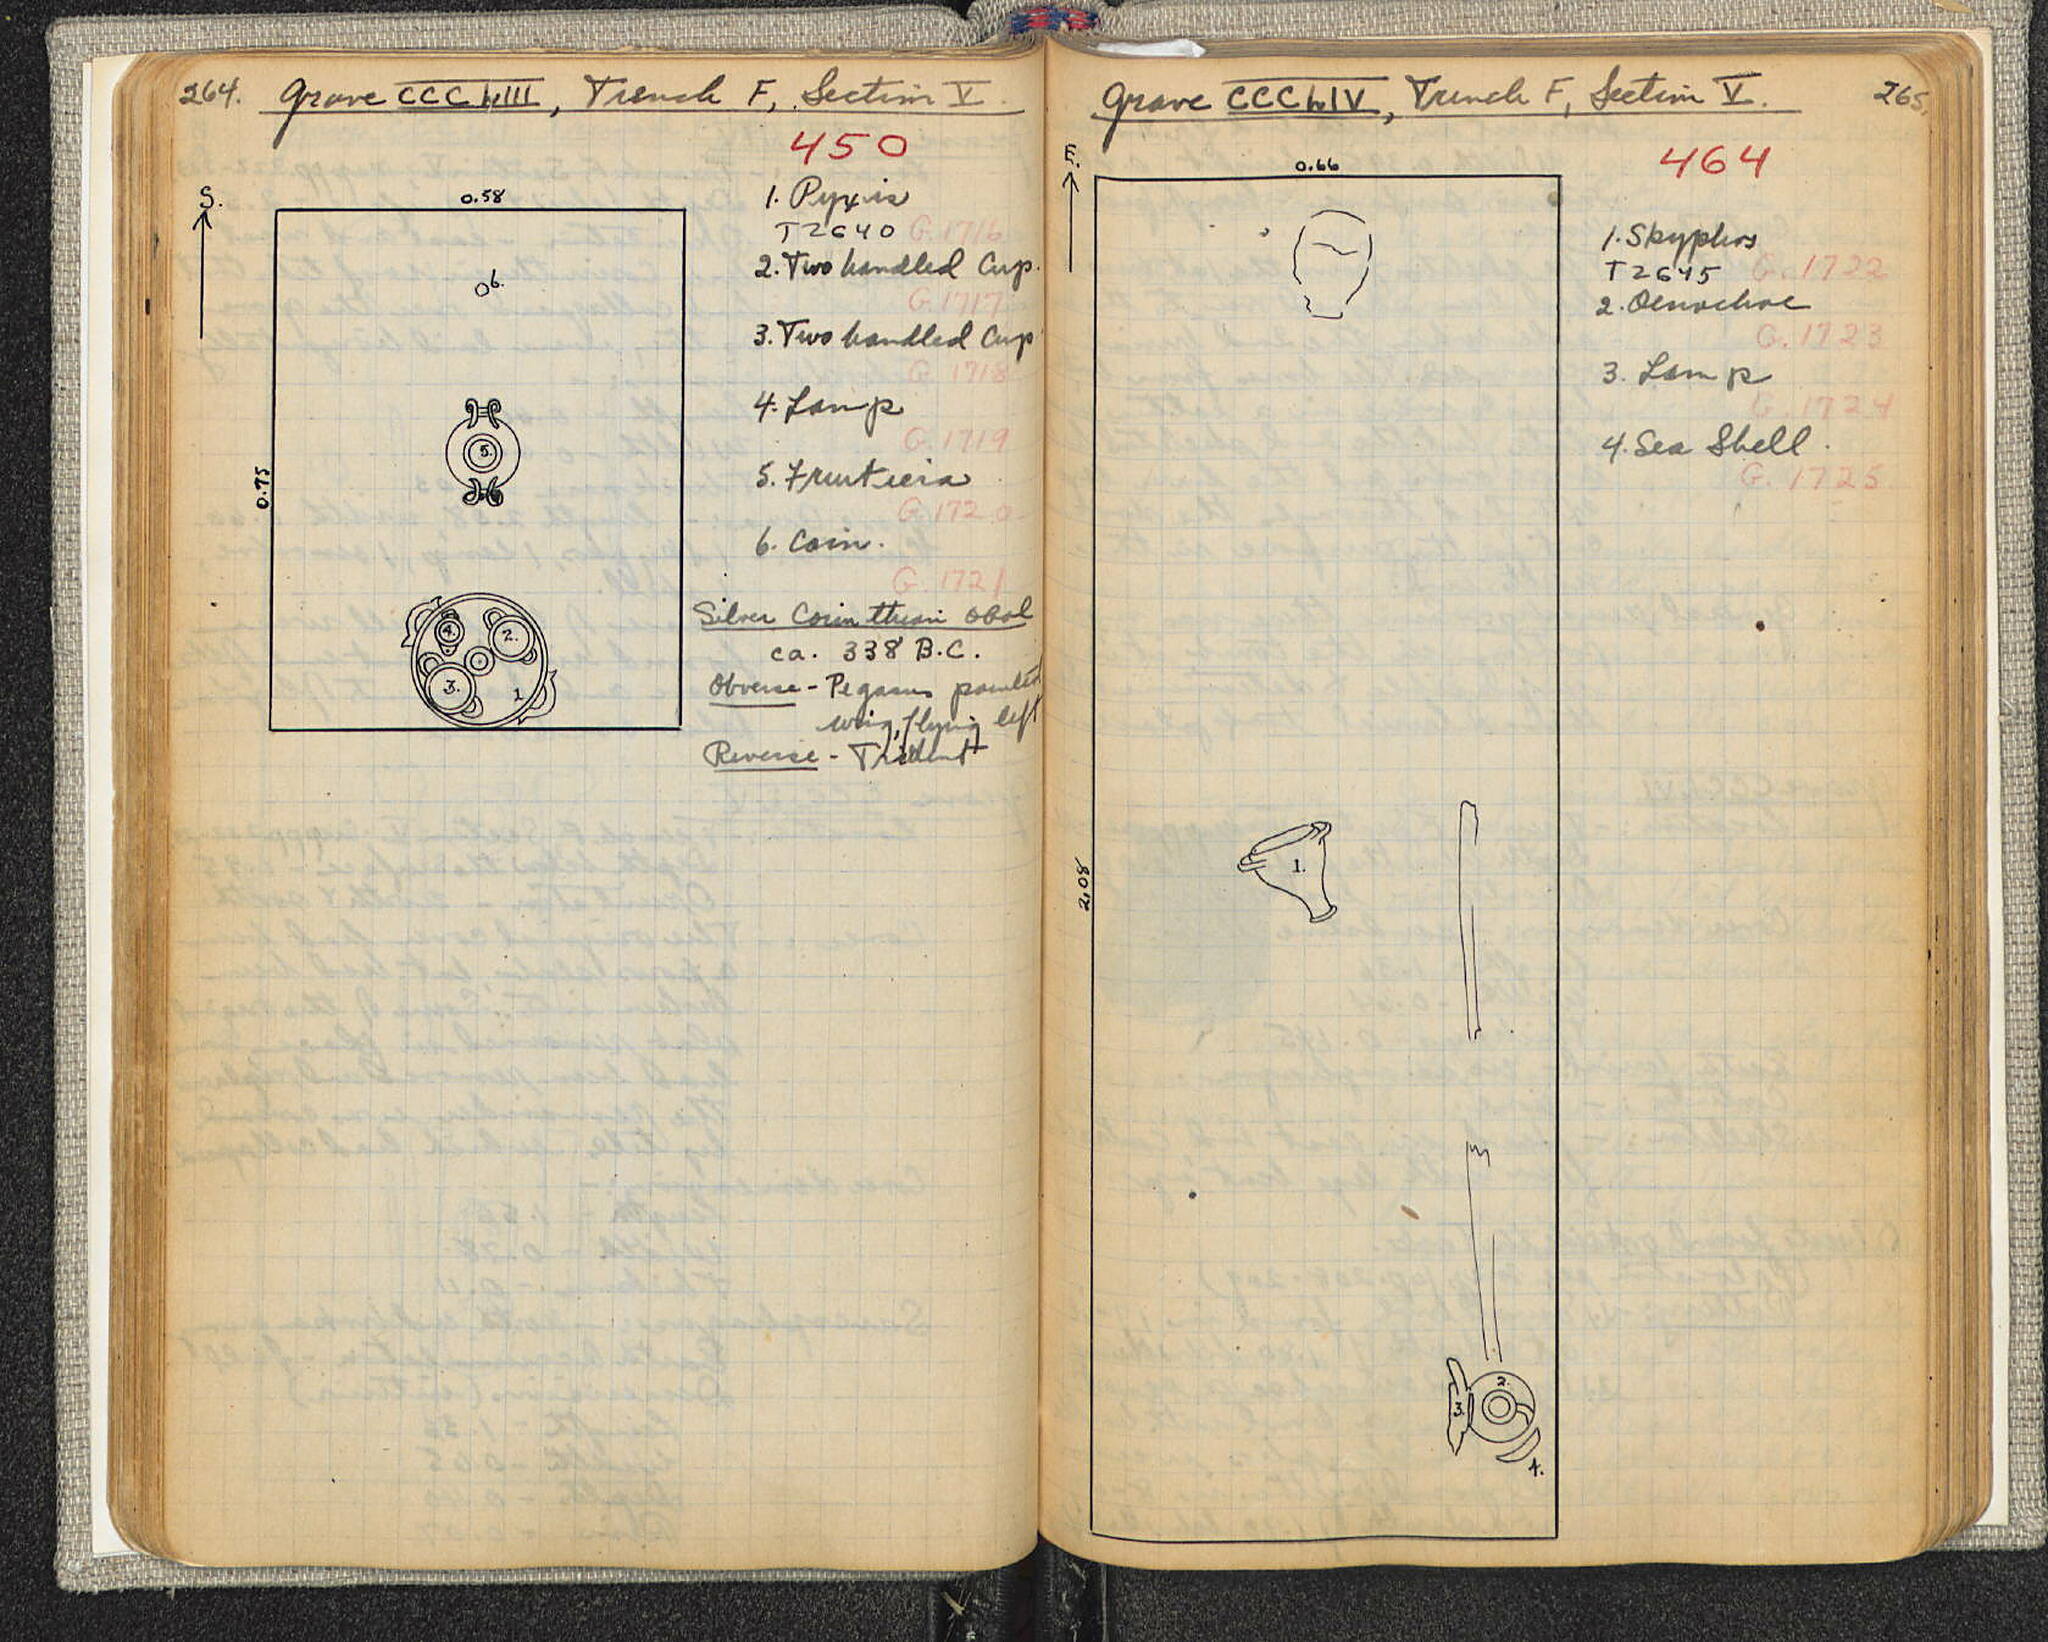 264. Grave CCCLIII, Trench F, Section V.
450
S.
0.58
0.75
6.
5.
4.
2.
3.
1
1. Pyxis
T2640 G.1716
2. Two handled Cup.
G.1717
3. Two handled Cup
G.1718
4. Lamp
G.1719
5. Fruticia
G.1720
6. Coin.
G.1721
Silver Corinthian Obol
ca. 338 B.C.
Obverse - Pegasus pointed
wing, flying left
Reverse - Trident
Grave CCCLIV, Trench F, Section V. 265.
464
E.
0.66
2.08
1.
2.
3.
4.
1. Skyphos
T2645 G.1722
2. Oenochoe
G.1723
3. Lamp
G.1724
4. Sea Shell.
G.1725